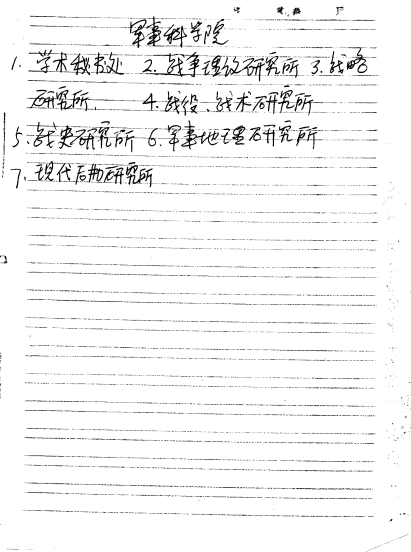 军事科学院
1. 学术秘书处 2. 战争理论研究所 3. 战略
研究所. 4. 战役、战术研究所
5. 战史研究所 6. 军事地理研究所
7. 现代后勤研究所